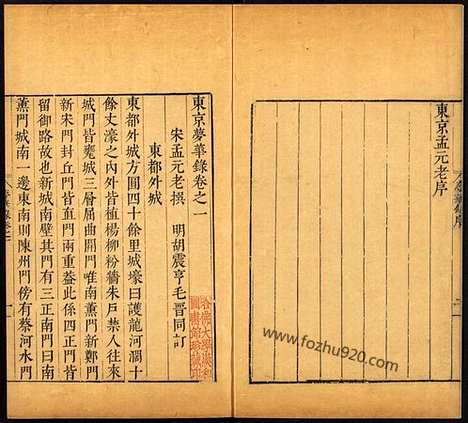 東京孟元老序
東京夢華錄卷之一
宋孟元老撰 明胡震亨毛晉同訂
東都外城
東都外城方圓四十餘里城壕曰護龍河濶十
餘丈濠之内外皆植楊柳粉牆朱戶禁人往來
城門皆甕城三層屈曲開門唯南薰門新鄭門
新宋門封丘門皆直門兩重葢此係四正門皆
留御路故也新城南壁其門有三正南門曰南
薰門城南一邊東南則陳州門傍有蔡河水門
www.fozhu920.com